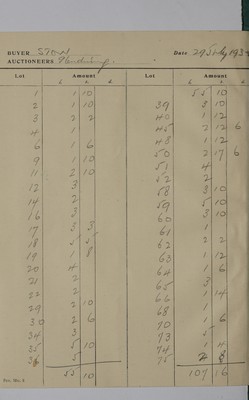 BUYER STOW Date 29 July 193
AUCTIONEERS
Lot Amount Lot Amount
£ s. d. £ s. d.
1 1 10
2 1 10
3 2 2
4 1
6 1 6
9 1 10
11 2 10
12 3
14 2
16 3
17 3 3
18 5 5
19 1 8
20 4
21 2
22 2
29 2 10
30 2 6
34 3
35 5 10
36 5
55 10
55 10
39 3 10
40 1 12
45 2 12 6
48 1 12
50 2 17 6
51 4
52 2
58 3 10
59 5 10
60 3 10
61 1
62 2 2
63 1 12
64 1 6
65 3
66 1 14
68 1
70 1 6
73 5
74 1 4
75 2 8
107 16